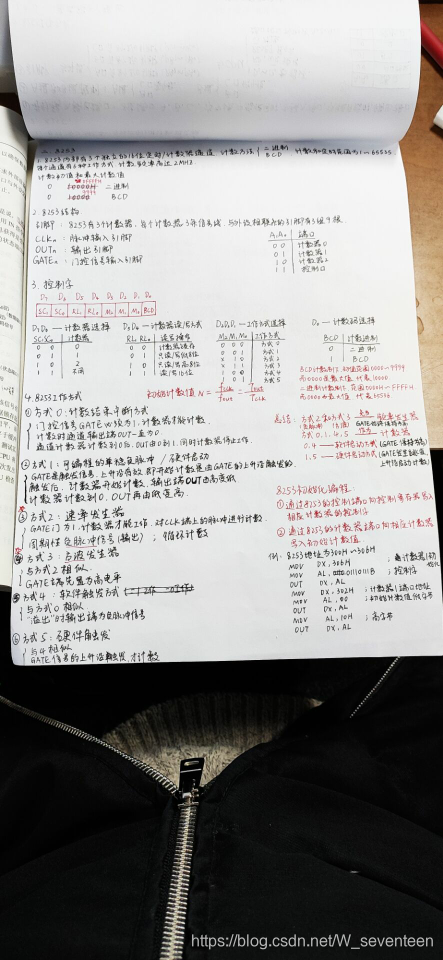 二. 8253
1. 8253内部有3个独立的16位定时/计数器通道 计数方法 二进制 BCD 计数初值的范围为1~65535
每个通道有6种工作方式 计数频率高达2MHz
计数初值和最大计数值
0 10000H 二进制
0 BCD
2. 8253结构
引脚: 8253有3个计数器, 每个计数器3条信号线, 与外设相联系的引脚有3组9根
CLKn: 脉冲输入引脚
OUTn: 输出引脚
GATEn: 门控信号输入引脚
A1 A0 端口
0 0 计数器0
0 1 计数器1
1 0 计数器2
1 1 控制口
3. 控制字
D7 D6 D5 D4 D3 D2 D1 D0
SC1 SC0 RL1 RL0 M2 M1 M0 BCD
D7D6 — 计数器选择
SC1 SC0 计数器
0 0 0
0 1 1
1 0 2
1 1 不用
D5D4 — 计数器读/写方式
RL1 RL0 读写操作
0 0 计数器锁存
0 1 只读/写低8位
1 0 只读/写高8位
1 1 读/写16位
D3D2D1 — 工作方式选择
M2 M1 M0 工作方式
0 0 0 方式0
0 0 1 方式1
x 1 0 方式2
x 1 1 方式3
1 0 0 方式4
1 0 1 方式5
D0 — 计数码选择
BCD 计数进制
0 二进制
1 BCD
BCD计数制, 初值范围0000~9999
而0000是最大值 代表10000
二进制计数制, 范围0000H~FFFFH
而0000为最大值 代表65536
4. 8253工作方式
初始计数值 N = Fclk/Fout = Tout/Tclk
① 方式0: 计数结束中断方式
门控信号GATE必须为1, 计数器才能计数
计数时通道输出端OUT一直为0
通道计数器计数到0时, OUT由0到1, 同时计数器停止工作.
② 方式1: 可编程的单稳负脉冲 / 硬件启动
GATE是触发信号, 上升沿有效, 即开始计数是由GATE的上升沿触发的.
触发后, 计数器开始计数, 输出端OUT由高变低
计数器计数到0, OUT再由低变高.
③ 方式2: 速率发生器
GATE门为1, 计数器才能工作. 对CLK端上的脉冲进行计数
周期性负脉冲信号(输出); 循环计数
④ 方式3: 方波发生器
与方式2相似.
GATE端总置为高电平
⑤ 方式4: 软件触发方式
与方式0相似
"溢出"时输出端为负脉冲信号
⑥ 方式5: 硬件触发
与4相似
GATE信号的上升沿触发, 才计数
总结: 方式2和方式3 发生器
GATE始终保持为高
方式0.1.4.5 计数器
0.4 — 软件启动方式(GATE保持为高)
1.5 — 硬件启动方式(GATE上升沿启动计数)
8253初始化编程:
① 通过8253的控制端口向控制寄存器写入相联计数器的控制字
② 通过8253的计数器端口向相应计数器写入初始计数值
例: 8253地址为300H~306H
MOV DX, 306H
MOV AL, 01110111B ; 控制字
OUT DX, AL
MOV DX, 302H ; 计数器1端口地址
MOV AL, 00 ; 初始计数值低字节
OUT DX, AL
MOV AL, 10H ; 高字节
OUT DX, AL
https://blog.csdn.net/W_seventeen